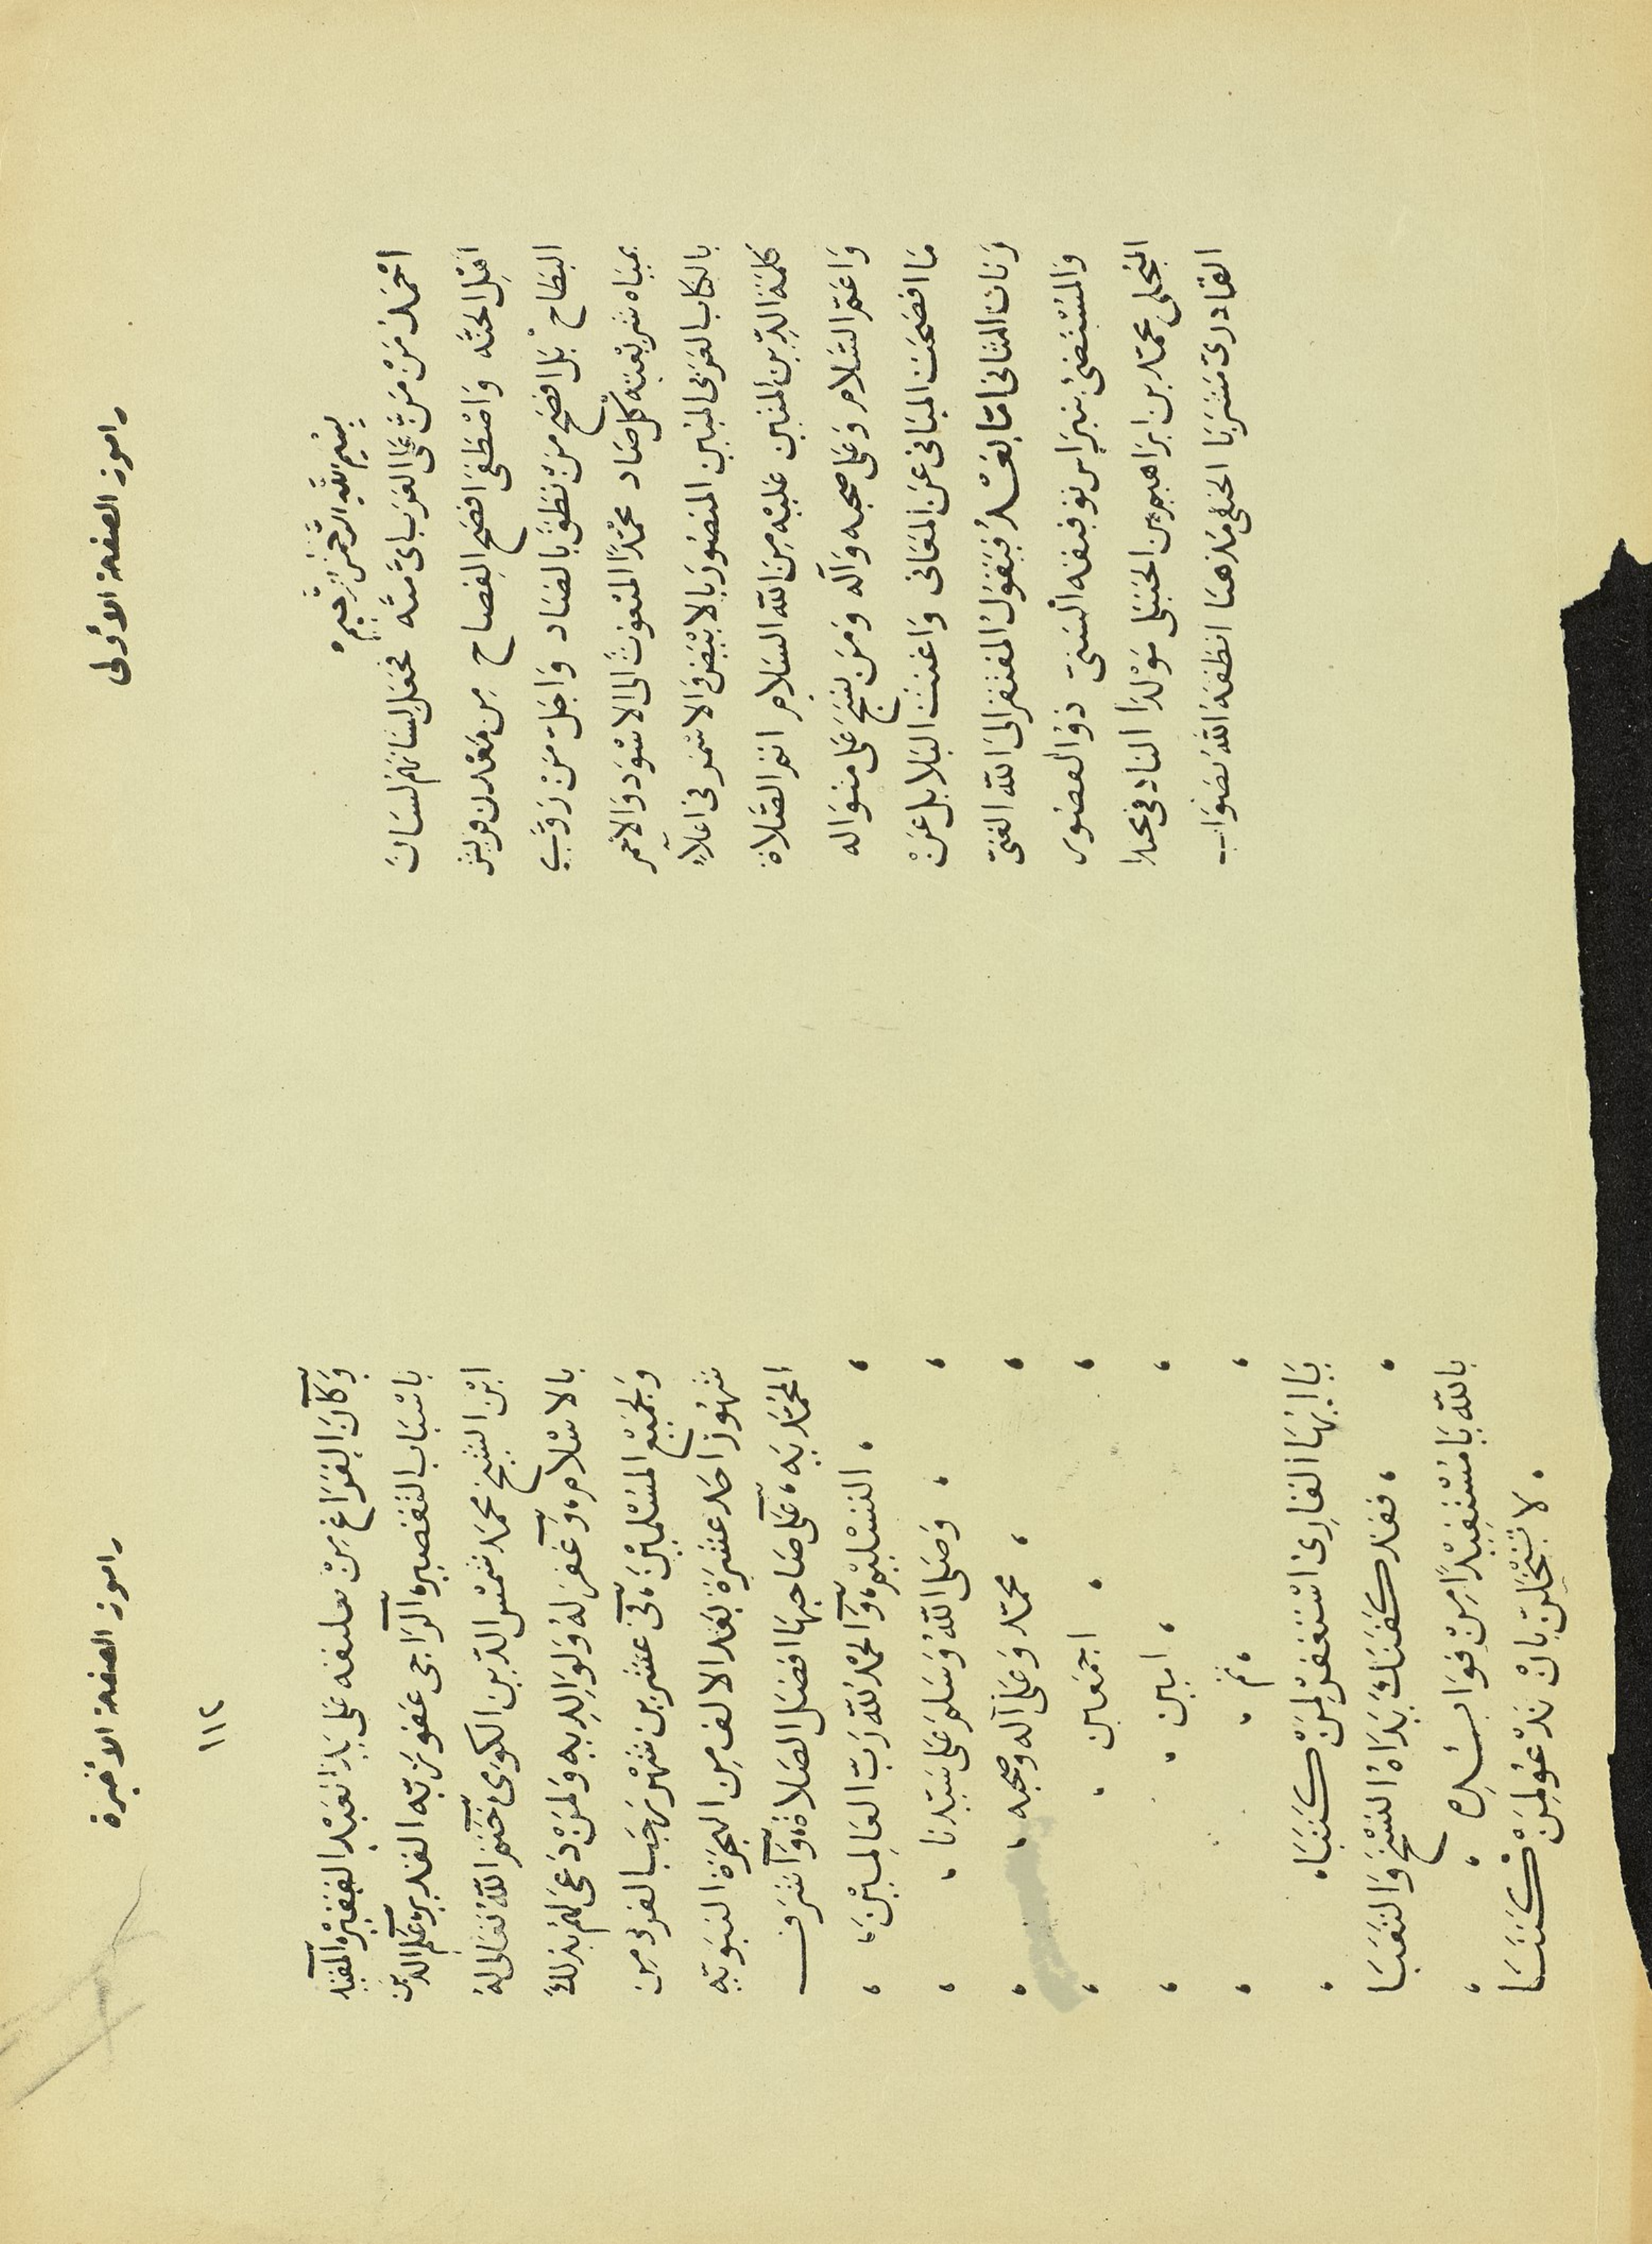 راموز الصفحة الأولى
بِسْمِ اللّٰهِ الرَّحْمٰنِ الرَّحِيمْ
احْمَدُ مَنْ مَنَّ عَلَى العَرَب باىّ منّه فجَعَل لِسَانَهُمْ لسَانَ
اَهْلِ الجنّه وَاصْطفَى افصَح الفِصاح مِن مَعْدن قريش
البطَاح بَل افصَح مَنْ نطَقَ بالضاد وَاجَلّ مَنْ رَوَّى
بميَاه شرِيعَتِه كلّ صَاد محمّدًا المبْعُوثَ الى الاسْوَد وَالاحمر
بالكتاب العَرَبى المبُين المنصُورَ بالابْيَض وَالاسْمَر فى اعلآءِ
كلمَة الدِّين المتين عَليْه مِنَ اللّٰه السَلام اتم الصَّلاة
وَاعَمّ السَّلام وَعَلى صحبه وَآله وَمَن نسَج عَلى منوَاله
مَا افصحَت المبَانى عَن المعَانى وَاغنت البَلابل عَنْ
رَنات المثانى امّا بَعْدُ فيَقولُ المفتقر الى اللّٰه الغنىّ
وَالمسْتضئ بنبرَاس توفيقه السَنىّ ذوُ القصُور
المنجلى محمّد بن ابرَاهيم بن الحَنبَلى مَوْلدًا التادفى محتدا
القادرىّ مَشرَبًا الحنفى مَذهبًا انطقهُ اللّٰه بصَوَاب
راموز الصفحة الأخيرة
١١٢
وَكان الفَرَاغ مِنْ تعليقه عَلى يَدِ العَبْدِ الفَقيْرِ المقيّد
باسْبَاب التقصير، الرّاجى عَفو ربّه القدير، عَلم الدّين
ابْن الشيخ محمَد شمْس الدّين الكوى، خَتم اللّٰه تعَالى لهُ
بالاسْلام، وَغفر لهُ وَلوَالِدِيهِ وَلمَنْ دَعَى لهُمْ بذلكَ
وَلجميْع المسْلميْنَ، فى عشرين شهْر رجَب الفرد مِن
شهُور احَد عشرَة بَعد الالف مِن الهجرَة النبَويّه
المحُمّديَّه، عَلى صَاحبهَا افضَل الصَلاة، وَاشرَف
التسْليْم، وَالحمْدُ للّٰه رَبّ العَالميْن،
وَصَلى اللّٰهُ وَسَلم عَلى سَيّدنا
محمّد وَعَلى آله وصحبه
اجمعَين
امين
تم
يَا ايّهَا القارئ اسْتغفرْ لِمَنْ كتَبَا، فقد كفتكَ يَدَاهُ النسْخَ وَالتعَبَا
باللّٰه يَا مُسْتفيْدًا مِنْ فوَائِدِه، لا تبْخَلنّ بانْ تدْعُو لِمَنْ كتَبَا